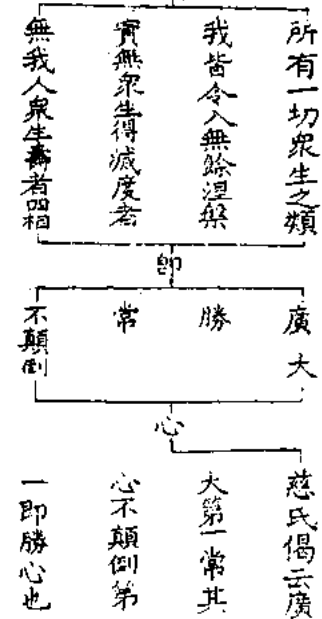 所有一切衆生之類
我皆令入無餘涅槃
實無衆生得滅度者
無我人衆生壽者四相
即
廣大
勝
常
不顛倒
心
慈氏偈云廣
大第一常其
心不顛倒第
一即勝心也